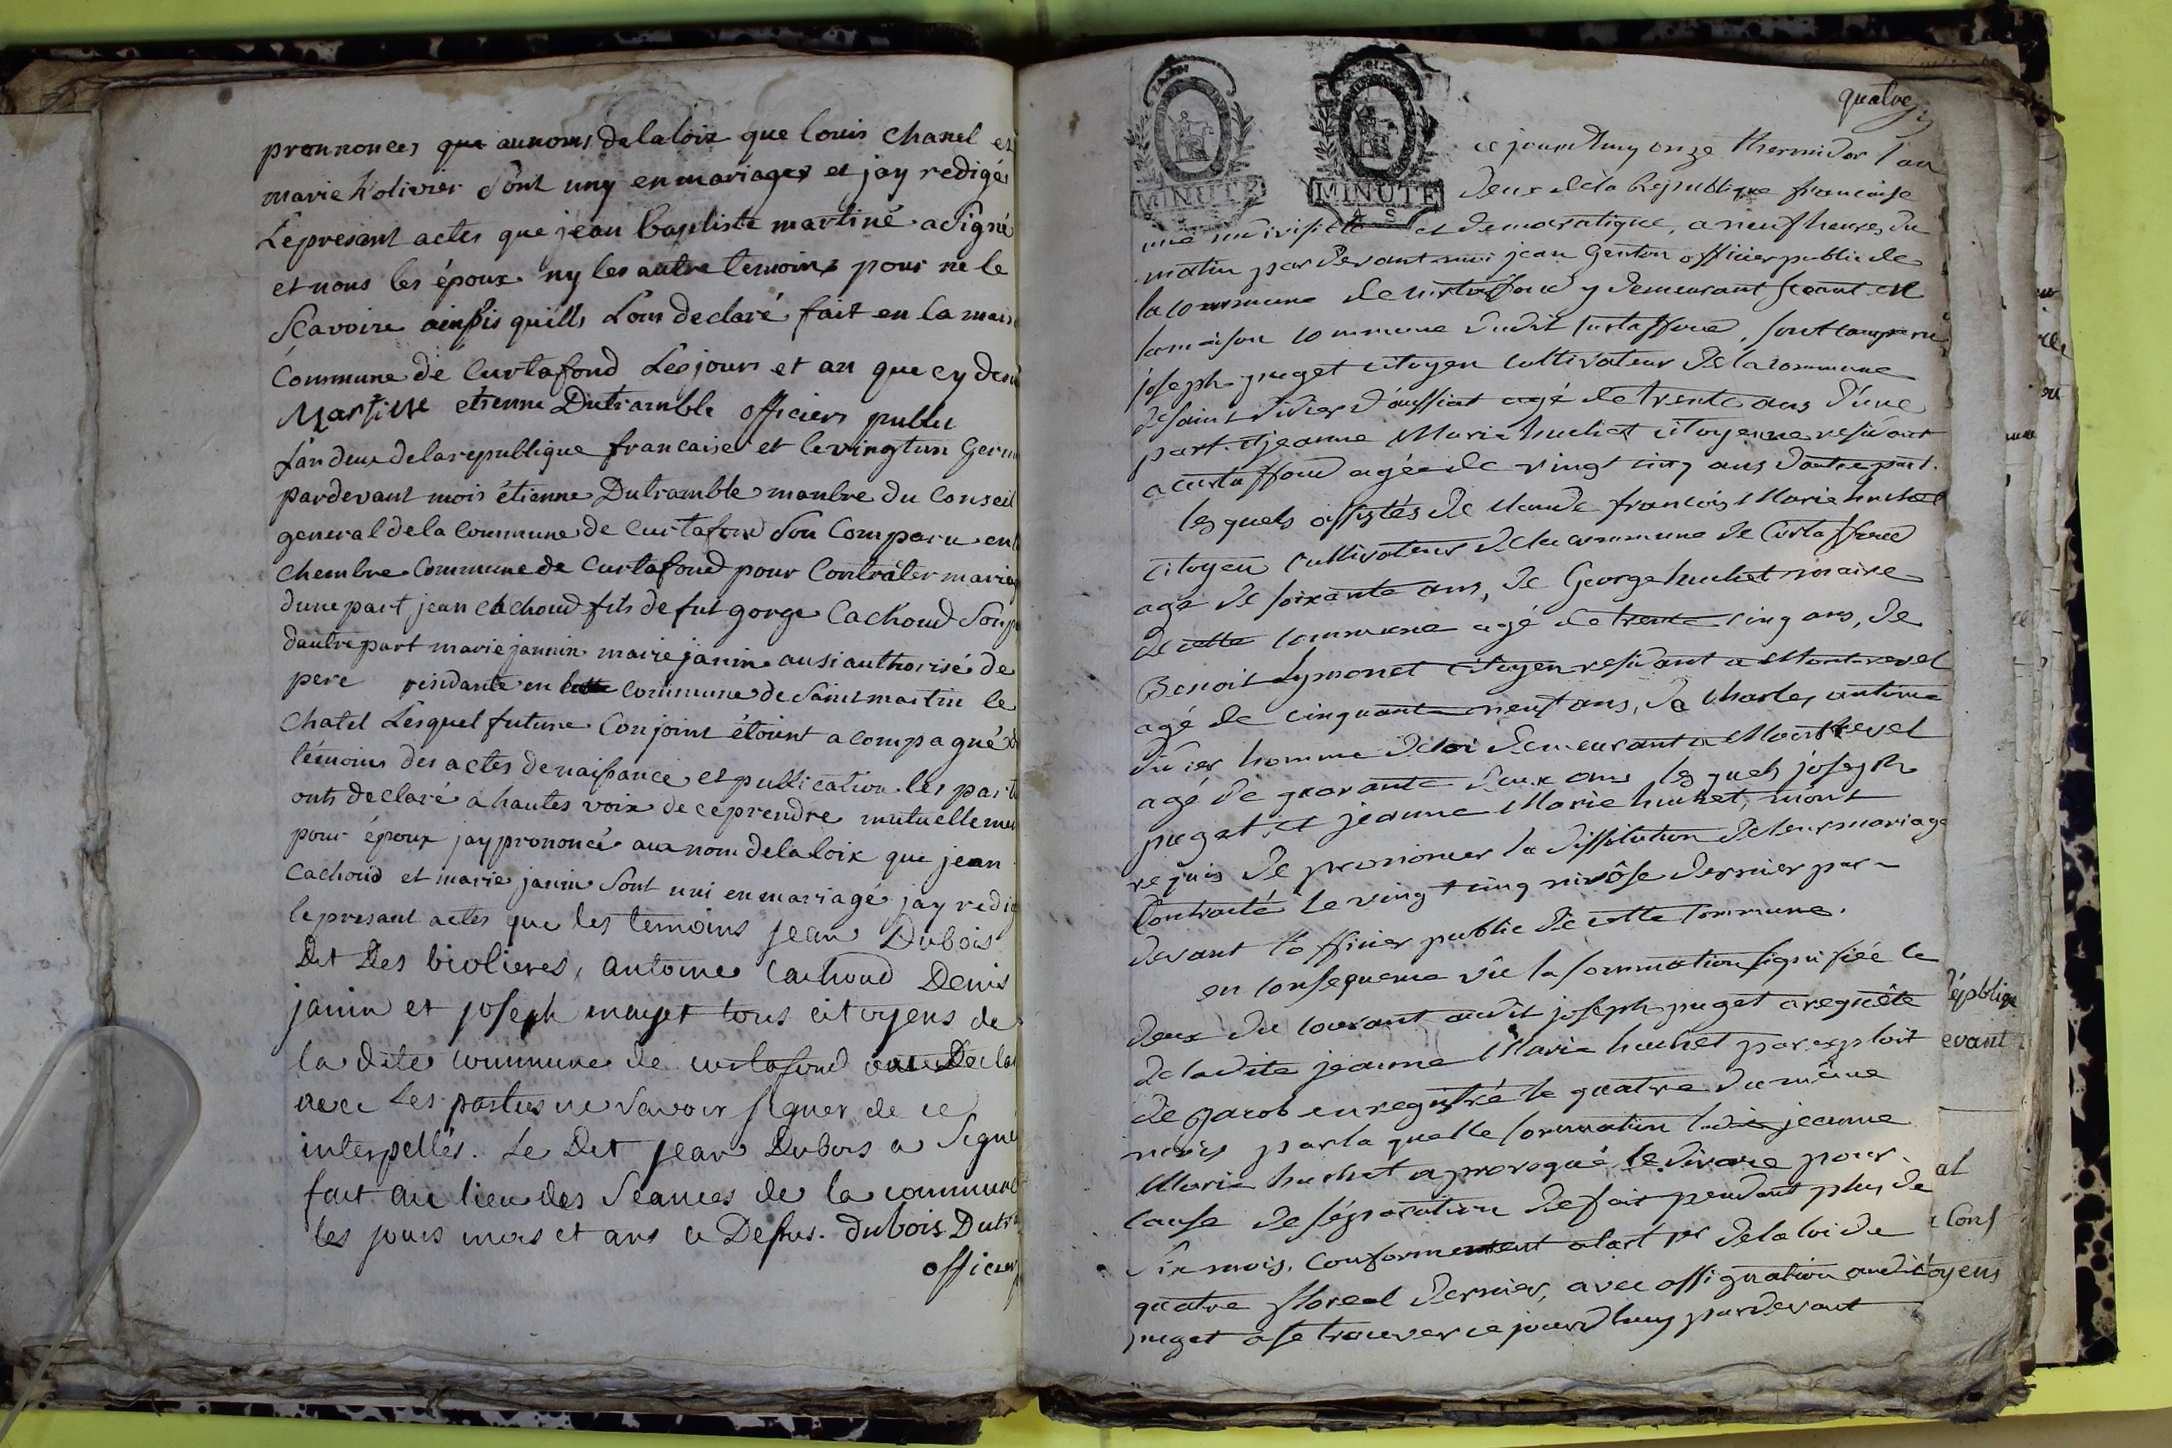 pronnonces que aunoms delaloix que louis chanel et
marie h'olivier sont uny en mariages et jay redigé
Lepresant actes que jean baptiste martiné a signé
et nous les époux ny les autre temoins pour ne le
scavoire ainssis quills lons declaré fait en la mais
commune de Curtafond Les jours et an que cy desu
Martine etienne Dutramble officiers public
Lan deux delarepublique francaise et levingtun Germ
pardevant mois étienne Dutramble manbre du Conseil
general dela Commune de Curtafond son Comparu en
chembre Commune de Curtafond pour Contrater mariag
dune part jean cachoud fils de fut gorge Cachoud
dautre part marie jannin marie janin ausi authorisé de
pere residante en commune de Saint martin le
Chatel Lesquel future Conjoint étoient a compagné
témoins des actes denaissance et publication les part
onts declaré a hautes voix de ceprendre mutuellemen
pour époux jay prononcé aux nom delaloix que jean
Cachoud et marie janin Sont uni en mariagé jay redig
lepresant actes que les temoins jean Dubois
Dit Des biolieres, antoine Cachoud Denis
janin et joseph mayet tous citoyens de
la dite commune de curtafond ont Declar
avec Les parties ne Savoir signer de ce
interpellés. Le Dit jean Dubois a Signé
fait au lieu des Seances de la commune
les jours mois et ans ci Dessus. dubois Dutr
officier
quatre
MINUTE
MINUTE
ce jourdhuy onze thermidor l'an
deux dela Republique francaise
une indivisible et democratique, a neuf heures du
matin par devant moi jean Genton officier public de
la commune de Curtaffond y demeurant seant en
lamaison commune dudit Curtaffond, sont comparu
joseph puget citoyen cultivateur de la commune
de saint didier d'aussiat agé de trente ans d'une
part. et jeanne Marie huchet citoyenne residant
a curtaffond agée de vingt cinq ans dautre part.
lesquels assistés de claude françois Marie huchet
citoyen cultivateur dela commune de Curtaffond
agé de soixante ans, de George huchet
de cette commune agé de trente cinq ans, de
Benoit Lymonet citoyen residant a Montrevel
agé de cinquante neuf ans, de Charles antoine
didier homme de loi demeurant a Montrevel
agé de quarante deux ans lesquels joseph
puget et jeanne Marie huchet, m'ont
requis de prononcer la dissolution de leur mariage
Contracté le vingt cinq nivôse dernier par-
devant l'officier public de cette commune.
en consequence vû la sommation signifiée le
deux du courant audit joseph puget a requête
de ladite jeanne Marie huchet par exploit
de Jacob enregistré le quatre du même
mois par la quelle sommation ladite jeanne
Marie huchet a provoqué le divorce pour
cause de séparation de fait pendant plus de
six mois, conformement a lart 1er dela loi du
quatre floreal dernier, avec assignation audit
puget a se trouver ce jourdhuy pardevant
Républiq
evant
al
Cons
toyens